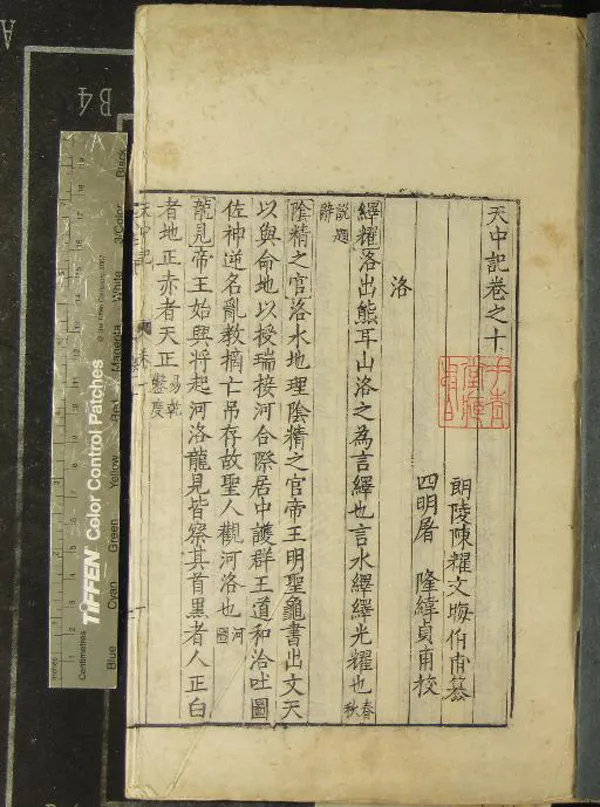 天中記卷之十
朗陵陳耀文晦伯甫纂
四明屠隆緯貞甫校
洛
繹耀洛出熊耳山洛之為言繹也言水繹繹光耀也春秋
說題辭
陰精之官洛水地理陰精之官帝王明聖龜書出文天
以與命地以授瑞接河合際居中護群王道和洽吐圖
佐神逆名亂教摘亡吊存故聖人觀河洛也河圖
龍見帝王始興將起河洛龍見皆察其首黑者人正白
者地正赤者天正易乾鑿度
天中記
A
B4
Black
3/Color
White
Magenta
Red
Yellow
Green
Cyan
Blue
TIFFEN Color Control Patches
Centimetres
Inches